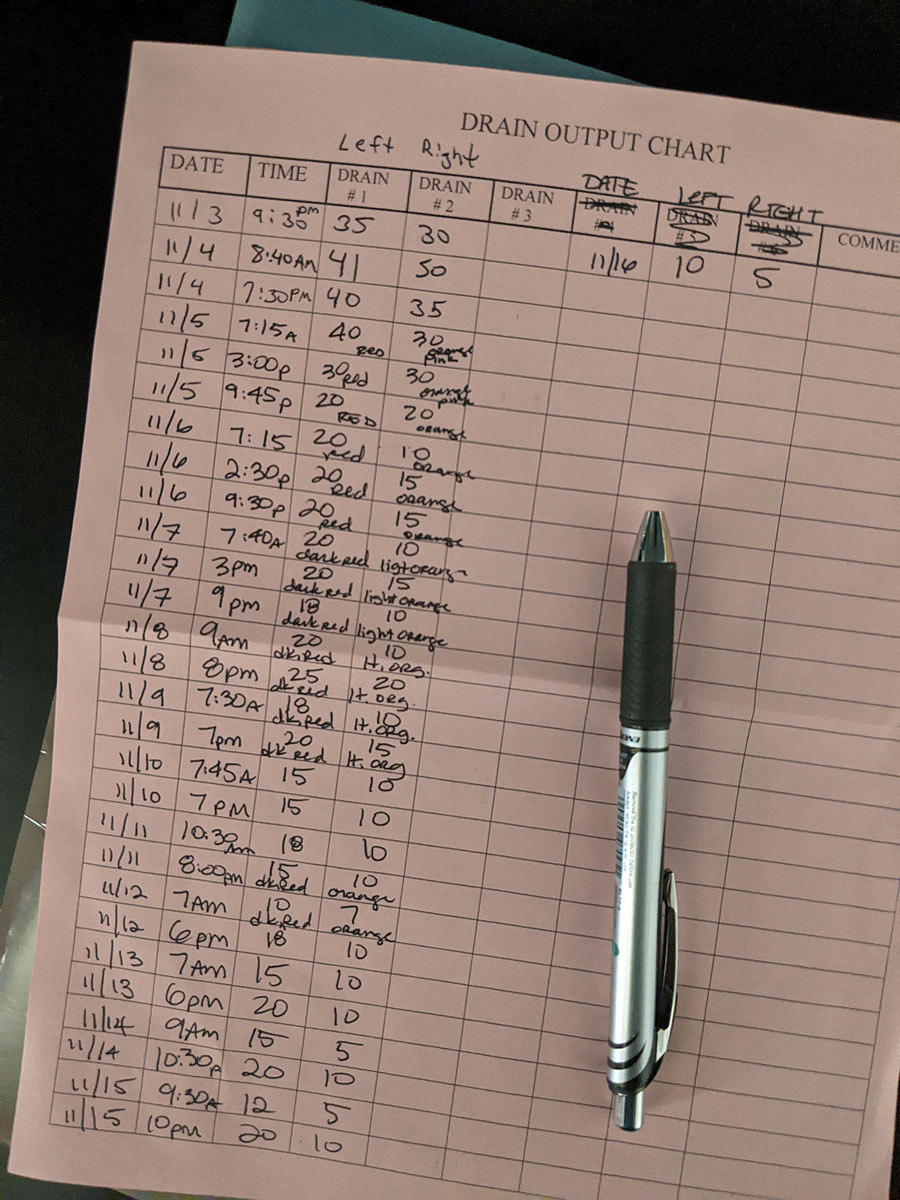 DRAIN OUTPUT CHART
Left Right
DATE TIME DRAIN #1 DRAIN #2 DRAIN #3 DATE LEFT RIGHT COMME
11/3 9:30 pm 35 30
11/4 8:40AM 41 50 11/16 10 5
11/4 7:30PM 40 35
11/5 7:15A 40 RED 30 orange pink
11/5 3:00p 30 red 30 orange pink
11/5 9:45p 20 RED 20 orange
11/6 7:15 20 red 10 orange
11/6 2:30p 20 Red 15 orange
11/6 9:30p 20 red 15 orange
11/7 7:40A 20 dark red 10 light orange
11/7 3pm 20 dark red 15 light orange
11/7 9pm 18 dark red 10 light orange
11/8 9Am 20 dk.Red 10 lt. org.
11/8 8pm 25 dk red 20 lt. org.
11/9 7:30A 18 dk.Red 10 lt. org.
11/9 7pm 20 dk red 15 lt. org
11/10 7:45A 15 10
11/10 7 PM 15 10
11/11 10:30 Am 18 10
11/11 8:00pm 15 dk.Red 10 orange
11/12 7AM 10 dk.Red 7 orange
11/12 6pm 18 10
11/13 7Am 15 10
11/13 6pm 20 10
11/14 9Am 15 5
11/14 10:30p 20 10
11/15 9:30A 12 5
11/15 10pm 20 10